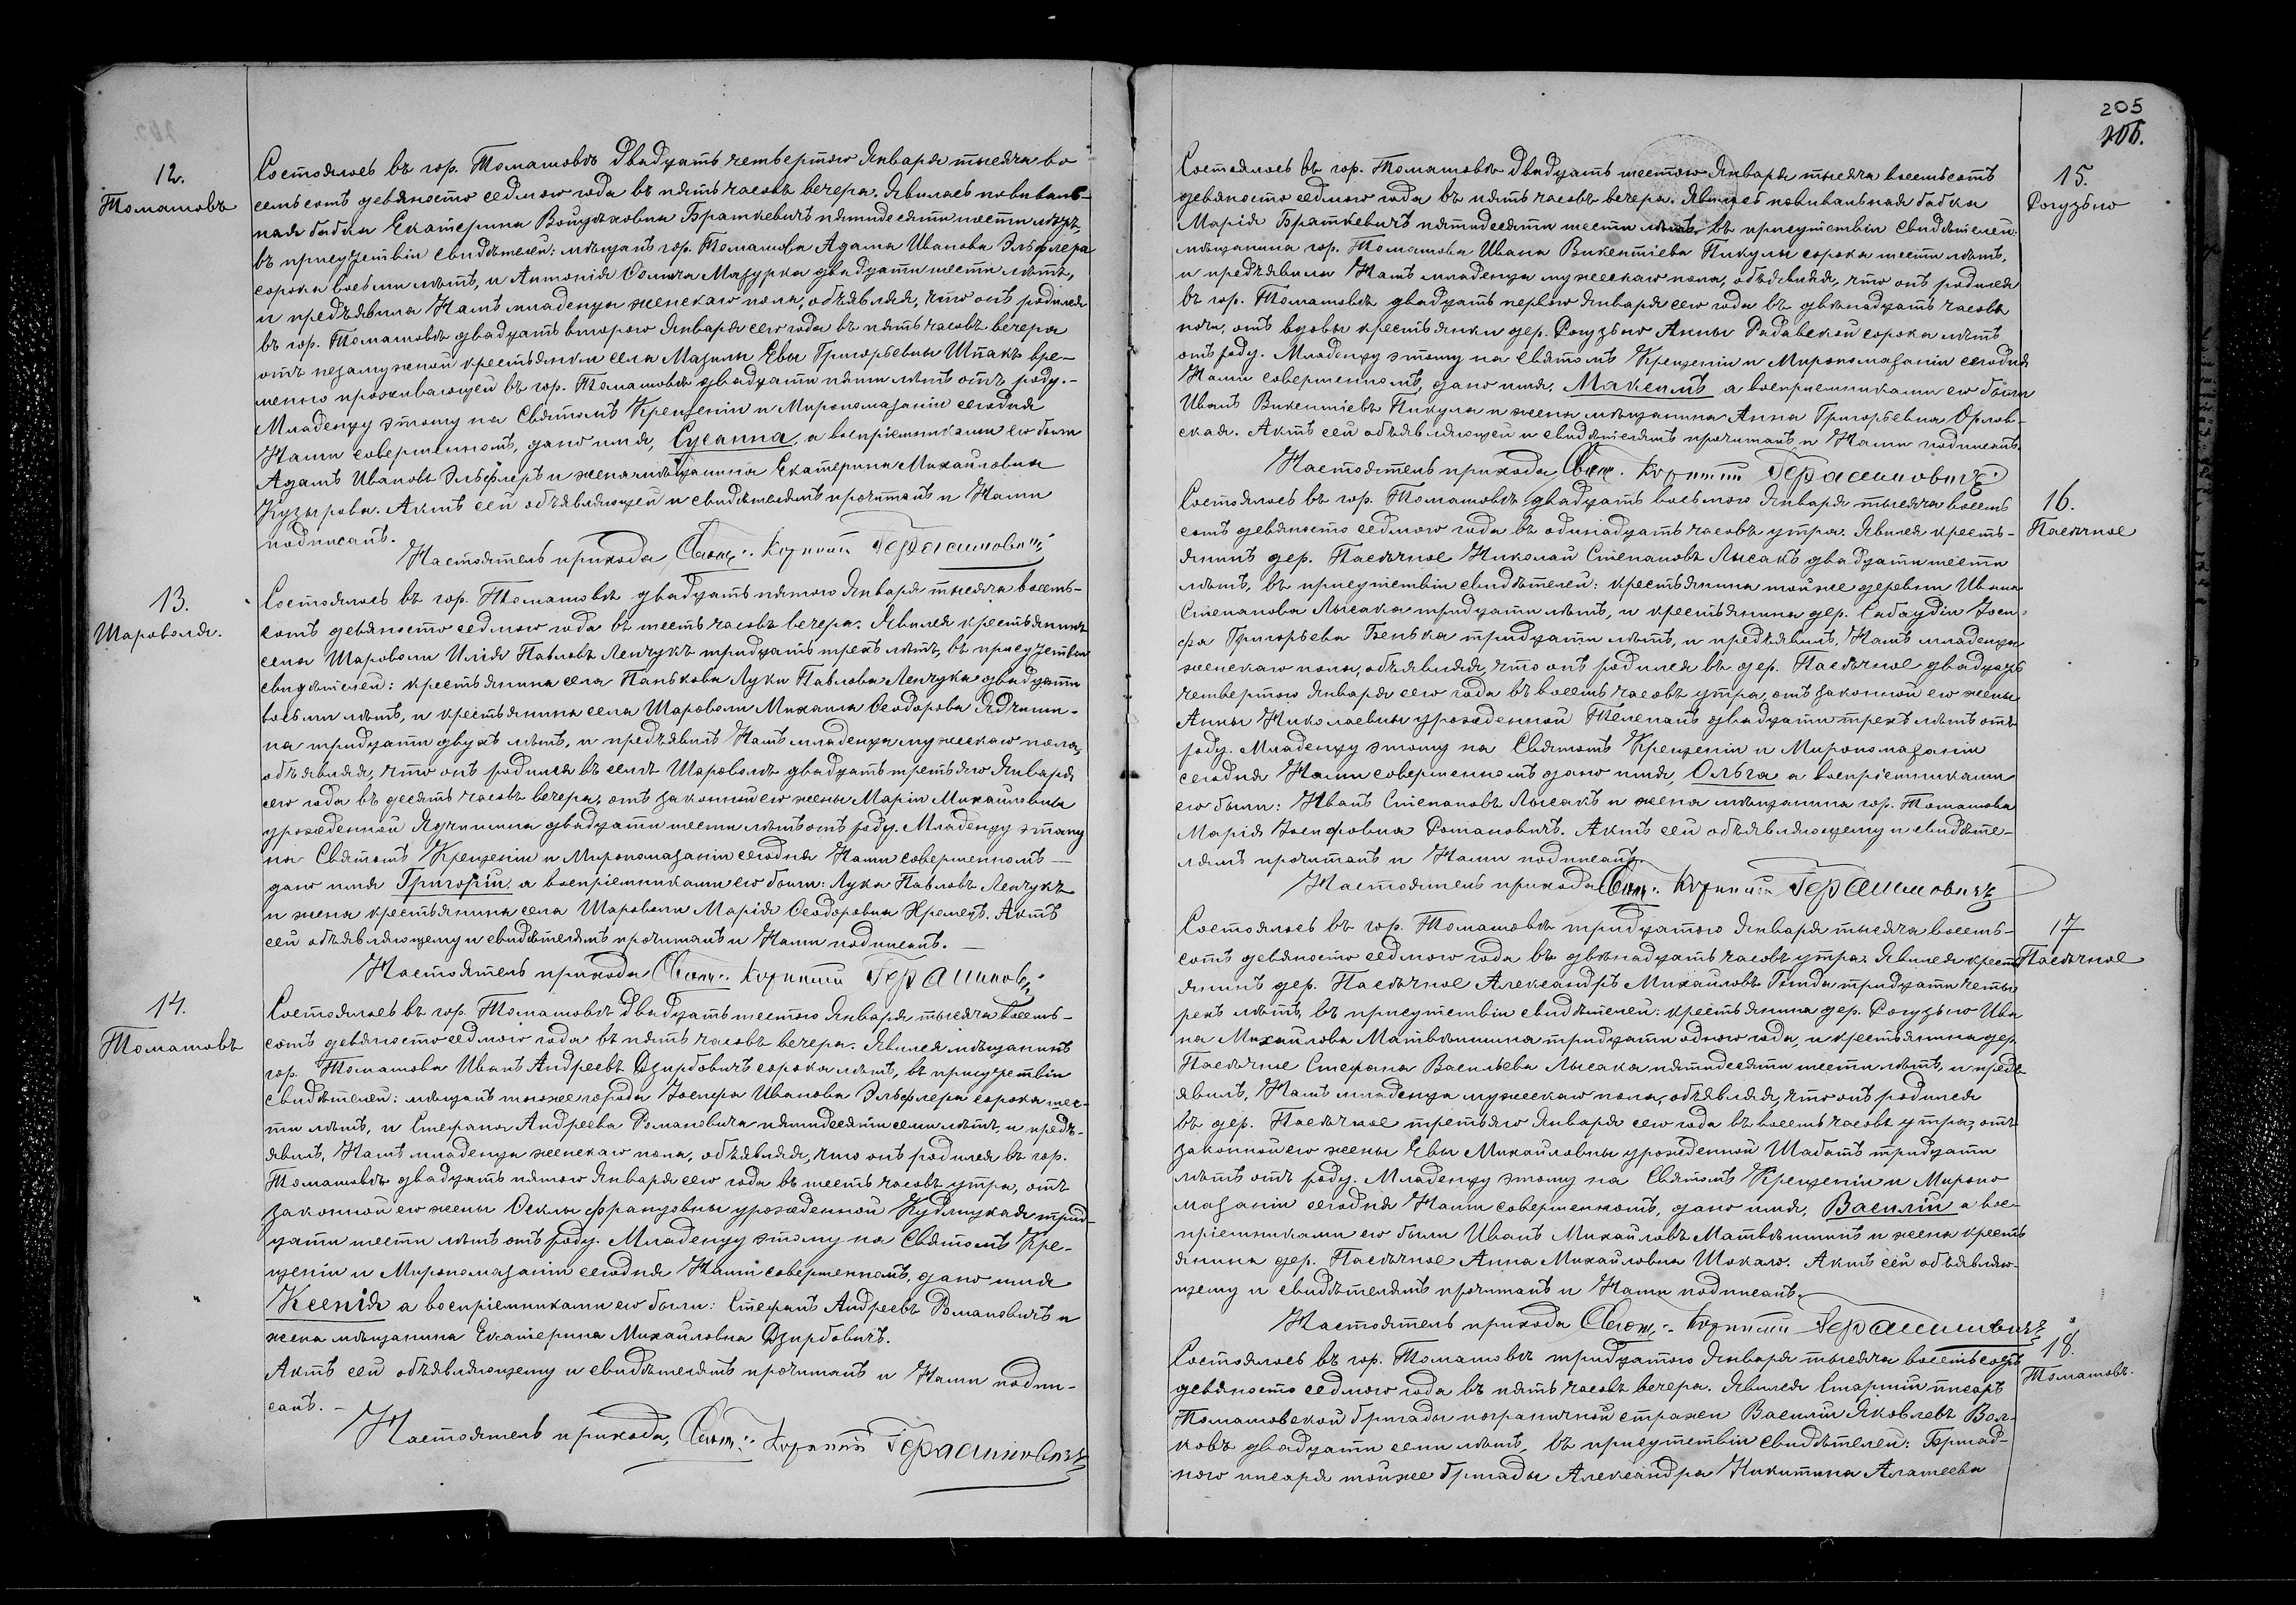 12.
Томашовъ
Состоялось въ гор. Томашовѣ двадцать четвертого Января тысяча во
семьсотъ девяносто седмого года въ пять часовъ вечера. Явилась повиваль-
ная бабка Екатерина Войцѣховна Браткевичъ пятидесяти шести лѣтъ,
въ присутствіи свидѣтелей: мѣщанъ гор. Томашова Адама Иванова Эльфлера
сорока восьми лѣтъ, и Антонія Мазурка двадцати шести лѣтъ,
и предъявила Намъ младенца женскаго пола, объявляя, что онъ родился
въ гор. Томашовѣ двадцать второго Января сего года въ пять часовъ вечера
отъ незамужной крестьянки села Мазилы Евы Григорьевны Шпакъ вре-
менно проживающей въ гор. Томашовѣ двадцати пяти лѣтъ отъ роду.-
Младенцу этому на Святомъ Крещеніи и Миропомазаніи сегодня
Нами совершенномъ, дано имя, Сусанна, а воспріемниками его были
Адамъ Ивановъ Эльфлеръ и жена мѣщанина Екатерина Михайловна
Кузырова. Актъ сей объявляющей и свидѣтелямъ прочитанъ и Нами
подписанъ.
Настоятель прихода, Свящ: Корнилій Герасимовичъ
13.
Шароволя.
Состоялось въ гор. Томашовѣ двадцать пятого Января тысяча восемь-
сотъ девяносто седмого года въ шесть часовъ вечера. Явился крестьянинъ
села Шароволи Илія Павловъ Ленчукъ тридцать трехъ лѣтъ, въ присутствіи
свидѣтелей: крестьянина села Панькова Луки Павлова Ленчука двадцати
восьми лѣтъ, и крестьянина села Шароволи Михаила Ѳеодорова Ядчиши-
на тридцати двухъ лѣтъ, и предъявилъ Намъ младенца мужескаго пола,
объявляя, что онъ родился въ селѣ Шароволѣ двадцать третьяго Января
сего года въ десять часовъ вечера, отъ законной его жены Маріи Михайловны
урожденной Ядчишина двадцати шести лѣтъ отъ роду. Младенцу этому
на Святомъ Крещеніи и Миропомазаніи сегодня Нами совершенномъ —
дано имя Григорій, а воспріемниками его были: Лука Павловъ Ленчукъ
и жена крестьянина села Шароволи Марія Ѳеодоровна Кремецъ. Актъ
сей объявляющему и свидѣтелямъ прочитанъ и Нами подписанъ. —
Настоятель прихода Свящ: Корнилій Герасимович
14.
Томашовъ
Состоялось въ гор. Томашовѣ двадцать шестого Января тысяча восемь-
сотъ девяносто седмого года въ пять часовъ вечера. Явился мѣщанинъ
гор. Томашова Иванъ Андреевъ Дзирбовичъ сорока лѣтъ, въ присутствіи
свидѣтелей: мѣщанъ тогоже города Іосифа Иванова Эльфлера сорока шес-
ти лѣтъ, и Стефана Андреева Романовича пятидесяти семи лѣтъ, и предъ-
явилъ, Намъ младенца женскаго пола, объявляя, что онъ родился въ гор.
Томашовѣ двадцать пятого Января сего года въ шесть часовъ утра, отъ
законной его жены Ѳеклы Францовны урожденной Кудлицкая трид-
цати шести лѣтъ отъ роду. Младенцу этому на Святомъ Кре-
щеніи и Миропомазаніи сегодня Нами совершенномъ, дано имя
Ксенія а воспріемниками его были: Стефанъ Андреевъ Романовичъ и
жена мѣщанина Екатерина Михайловна Дзирбовичъ.
Актъ сей объявляющему и свидѣтелямъ прочитанъ и Нами подпи-
санъ. —
Настоятель прихода, Свящ: Корнилій Герасимовичъ
205
206.
15.
Рогузьно
Состоялось въ гор. Томашовѣ двадцать шестого Января тысяча восемьсотъ
девяносто седмого года въ пять часовъ вечера. Явилась повивальная бабка
Марія Браткевичъ пятидесяти шести лѣтъ, въ присутствіи свидѣтелей:
мѣщанина гор. Томашова Ивана Викентіева Пикулы сорока шести лѣтъ,
и предъявила Намъ младенца мужескаго пола, объявляя, что онъ родился
въ гор. Томашовѣ двадцать первого Января сего года въ двѣнадцать часовъ
ночи, отъ вдовы крестьянки дер. Рогузьно Анны Радавской сорока лѣтъ
отъ роду. Младенцу этому на Святомъ Крещеніи и Миропомазаніи сегодня
Нами совершенномъ, дано имя, Максимъ а воспріемниками его были
Иванъ Викентіевъ Пикула и жена мѣщанина Анна Григорьевна Орлов-
ская. Актъ сей объявляющей и свидѣтелямъ прочитанъ и Нами подписанъ.
Настоятель прихода, Свящ. Корнилій Герасимовичъ.
16.
Пасѣчное
Состоялось въ гор. Томашовѣ двадцать восьмого Января тысяча восемь
сотъ девяносто седмого года въ одинадцать часовъ утра. Явился кресть-
янинъ дер. Пасѣчное Николай Степановъ Лысакъ двадцати шести
лѣтъ, въ присутствіи свидѣтелей: крестьянина тойже деревни Ивана
Степанова Лысака тридцати лѣтъ, и крестьянина дер. Сабаудіи Іоси-
фа Григорьева Бенька тридцати лѣтъ, и предъявилъ, Намъ младенца
женскаго пола, объявляя, что онъ родился въ дер. Пасѣчное двадцать
четвертого Января сего года въ восемь часовъ утра, отъ законной его жены
Анны Николаевны урожденной Телепанъ двадцати трехъ лѣтъ отъ
роду. Младенцу этому на Святомъ Крещеніи и Миропомазаніи
сегодня Нами совершенномъ дано имя, Ольга а воспріемниками
его были: Иванъ Степановъ Лысакъ и жена мѣщанина гор. Томашова
Марія Іосифовна Романовичъ. Актъ сей объявляющему и свидѣте-
лямъ прочитанъ и Нами подписанъ.
Настоятель прихода Свящ: Корнилій Герасимовичъ
17
Пасѣчное
Состоялось въ гор. Томашовѣ тридцатого Января тысяча восемь-
сотъ девяносто седмого года въ двѣнадцать часовъ утра. Явился кресть
янинъ дер. Пасѣчное Александръ Михайловъ Гинда тридцати четы
рехъ лѣтъ, въ присутствіи свидѣтелей: крестьянина дер. Рогузьно Ива
на Михайлова Матвѣишина тридцати одного года, и крестьянина дер.
Пасѣчное Стефана Васильева Лысака пятидесяти шести лѣтъ, и предъ
явилъ, Намъ младенца мужескаго пола, объявляя, что онъ родился
въ дер. Пасѣчное третьяго Января сего года въ восемь часовъ утра, отъ
законной его жены Евы Михайловны урожденной Шабатъ тридцати
лѣтъ отъ роду. Младенцу этому на Святомъ Крещеніи и Миропо
мазаніи сегодня Нами совершенномъ, дано имя, Василій а вос-
пріемниками его были Иванъ Михайловъ Матвѣишинъ и жена кресть
янина дер. Пасѣчное Анна Михайловна Шокало. Актъ сей объявляю-
щему и свидѣтелямъ прочитанъ и Нами подписанъ.
Настоятель прихода Свящ: Корнилій Герасимовичъ
18.
Томашовъ.
Состоялось въ гор. Томашовѣ тридцатого Января тысяча восемьсотъ
девяносто седмого года въ пять часовъ вечера. Явился Старшій писарь
Томашовской бригады пограничной стражи Василій Яковлевъ Вол-
ковъ двадцати семи лѣтъ, въ присутствіи свидѣтелей: Бригад-
ного писаря тойже бригады Александра Никитина Алатеева